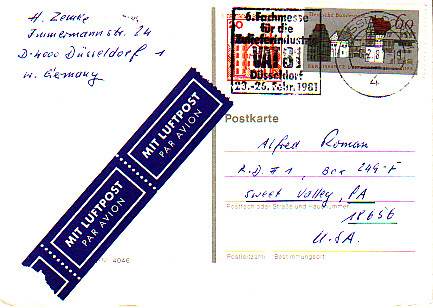 H. Zemke
Immermannstr. 24
D-4000 Düsseldorf 1
W. Germany
6. Fachmesse
für die
Zulieferindustrie
Düsseldorf
23.-26. Febr. 1981
60
4
MIT LUFTPOST
PAR AVION
MIT LUFTPOST
PAR AVION
Postkarte
Alfred Roman
R.D. # 1, Box 249-F
Sweet Valley, PA
18656
U.S.A.
Postfach oder Straße und Hausnummer
Postleitzahl Bestimmungsort
4046